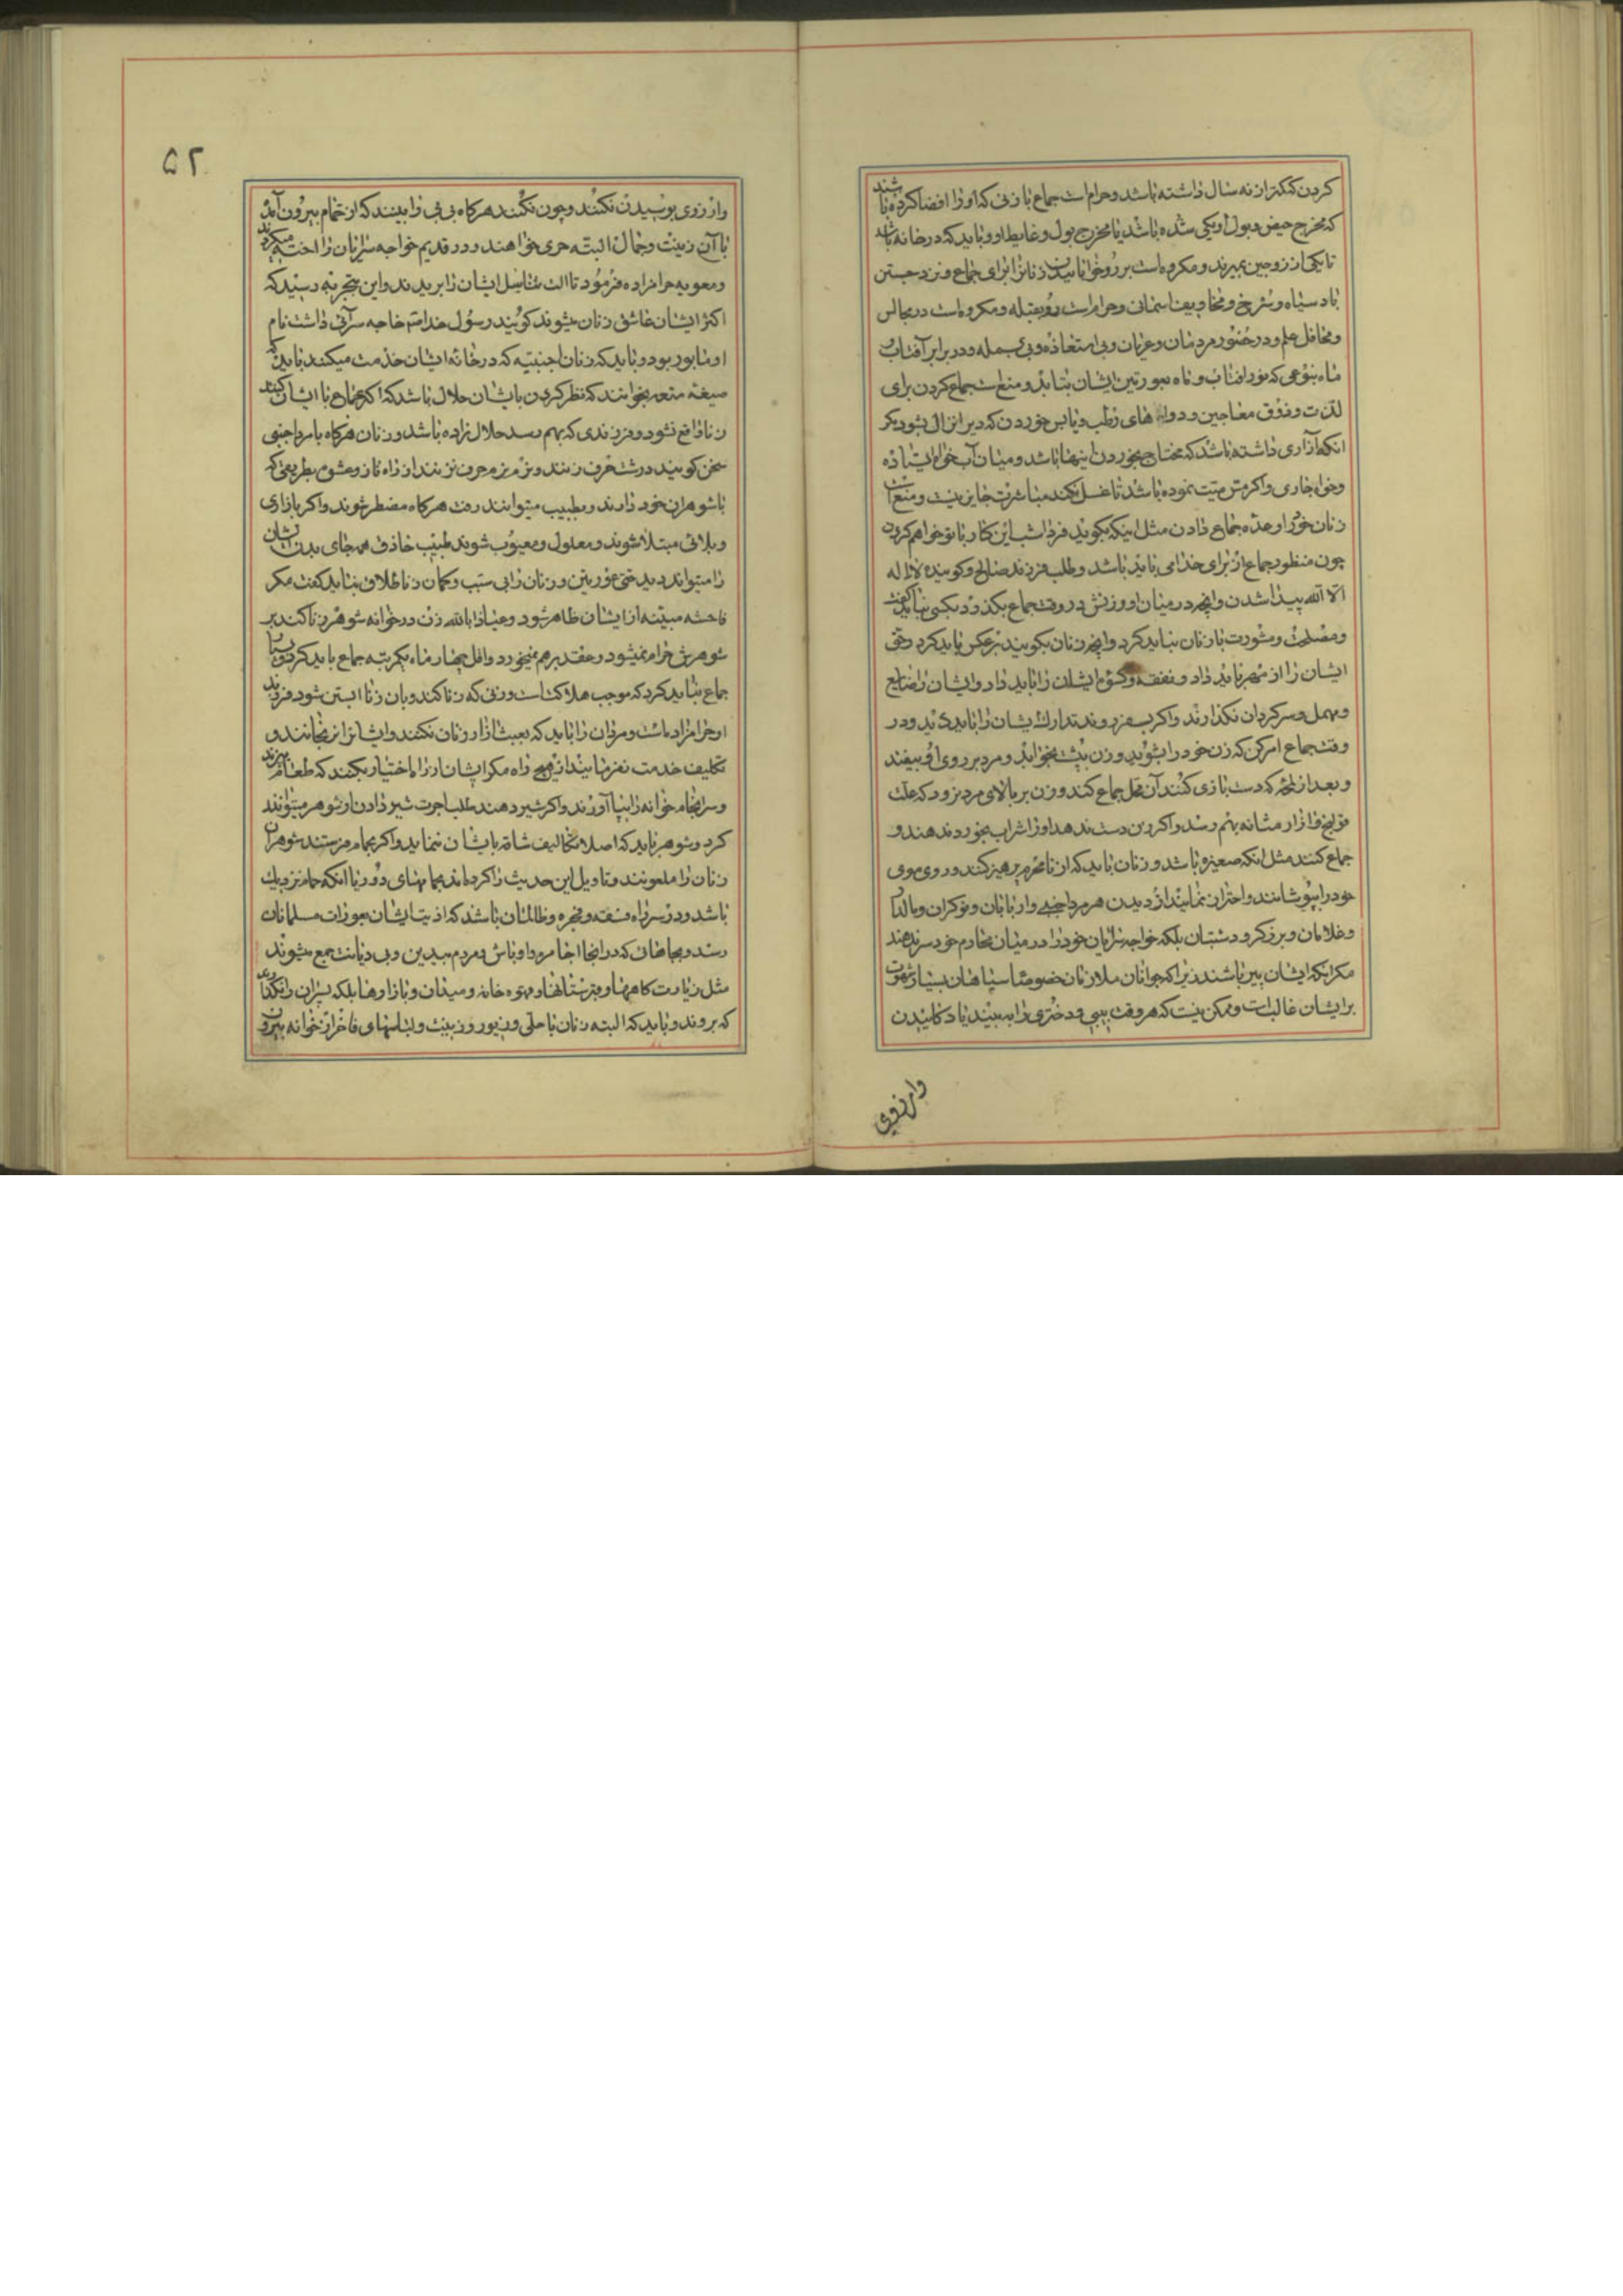 کردن که کمتر از نه سال داشته باشد و حرام است جماع با زنی که او را افضا کرده باشند
که مخرج حیض و بول او یکی شده باشد یا مخرج بول و غایط او و باید که در خانه باشد
تا یکی از زوجین بمیرند و مکروه است بر رو خوابانیدن زنان را برای جماع و نزد جستن
باد سیاه و سرخ و مخاویف اسمانی و حرام است رو بقبله و مکروه است در مجالس
و محافل علم و در حضور مردمان و عریان و بی استعاذه و بی بسمله و در برابر آفتاب و
ماه بنوعی که نور افتاب و ماه بعورتین ایشان بتابد و منع است جماع کردن برای
لذت و ذوق معاجین و دواهای رطب و یابس خوردن که دیر انزال بشود مگر
انکه آزاری داشته باشد که محتاج بخوردن اینها باشد و میان آب خواه ایستاده
و خواه جاری و اکر مس میت نموده باشد تا غسل نکند مباشرت جایز نیست و منع است
زنان خود را وعده جماع دادن مثل اینکه بکوید فردا شب این کار با تو خواهم کردن
چون منظور جماع از برای خدا می باید باشد و طلب فرزند صالح و کوینده لا اله
الا الله پیدا شدن و انچه در میان او و زنش در وقت جماع بکذرد بکسی نباید گفت
و مصلحت و مشورت با زنان نباید کرد و انچه زنان بکویند بر عکس باید کرد و حق
ایشان را از مهر باید داد و نفقه و کسوه ایشان را باید داد و ایشان را ضایع
و مهمل و سرکردان نکذارند و اکر بسفر روند تدارک ایشان را باید دید و در
وقت جماع امر کن که زن خود را بشوید و زن بپشت بخوابد و مرد بر روی او بیفتد
و بعد از که دست بازی کنند آن محل جماع کند و زن بر بالای مرد نرود که علت
قولنج و ازار مثانه بهم رسد و اکر زن دست ندهد او را شراب بخورد ندهند و
جماع کنند مثل انکه صغیره باشد و زنان باید که از نامحرم پرهیز کنند و روی و موی
خود را بپوشانند و احتراز نمایند از دیدن هر مرد اجنبی و اربابان و نوکران و
و غلامان و برزکر و دشتبان بلکه خواجه سرایان خود را در میان مخادم خود سر ندهند
مکر انکه ایشان پیر باشند زیرا که جوانان ملازمان خصوصا سپاهیان بسیار شهوت
بر ایشان غالب است و ممکن نیست که هر وقت بیبی و دختری را ببینند یاد کائیدن
وارزوی
۵۲
وارزوی بوسیدن نکنند و چون نکنند هر کاه بی بی را ببینند که از حمام بیرون آید
با آن زینت و جمال البته حری خواهند و در قدیم خواجه سرایان را اخته میکردند
و معویه حرامزاده فرمود تا الت تناسل ایشان را بریدند و این بتجربه رسید که
اکثر ایشان عاشق زنان میشوند کویند رسول خدا خاجه سرائی داشت نام
او مابور بود و باید که زنان اجنبیه که در خانه ایشان خدمت میکنند باید که
صیغه متعه بخوانند که نظر کردن بایشان حلال باشد که اکر جماع با ایشان کنند
زنا واقع نشود و فرزندی که بهم رسد حلال زاده باشد و زنان هر کاه با مرد اجنبی
سخن کویند درشت حرف زنند و نرم نرم حرف نزنند از راه ناز و عشوه بطریقی که
با شوهران خود دارند و بطبیب میتوانند رفت هر کاه مضطر شوند و اکر بازاری
و بلائی مبتلا شوند و معلول و معیوب شوند طبیب حاذق همه جای بدن ایشان
را میتواند دید حتی عورتین و زنان را بی سبب و کمان زنا طلاق نباید گفت مکر
فاحشه مبینه از ایشان ظاهر شود و عیاذا بالله زن در خوانه شوهر زنا کند بر
شوهرش حرام نمیشود و عقد برهم نمیخورد و اقل چهار ماه یکمرتبه جماع باید کرد
جماع نباید کرد که موجب هلاکت است و زنی که زنا کند و بان زنا ابستن شود فرزند
او حرامزاده است و مردان را باید که بعبث ازار زنان نکنند و ایشانرا نرنجانند و
تکلیف خدمت نفرمایند از هیچ راه مکر ایشان از راه اختیار بکنند که طعام بپزند
و سرانجام خوانه را بپا آورند و اکر شیر دهند طلب اجرت شیر دادن از شوهر میتوانند
کرد و شوهر باید که اصلا تکالیف شاقه بایشان ننماید و اکر بحمام فرستند شوهران
زنان را ملعونند و تاویل این حدیث را کرده اند بحمامهای دور یا انکه حمام نزدیک
باشد و در سر راه فسقه و فجره و ظالمان باشد که اذیت ایشان بعورات مسلمانان
رسد و بجاهائی که در انجا اجامره و اوباش و مردم بیدین و بی دیانت جمع میشوند
مثل زیارت کاهها و قبرستانها و قهوه خانه و میدان و بازارها بلکه پسران را نگذارند
که بروند و باید که البته زنان با حلی و زیور و زینت و لباسهای فاخر از خوانه بیرون